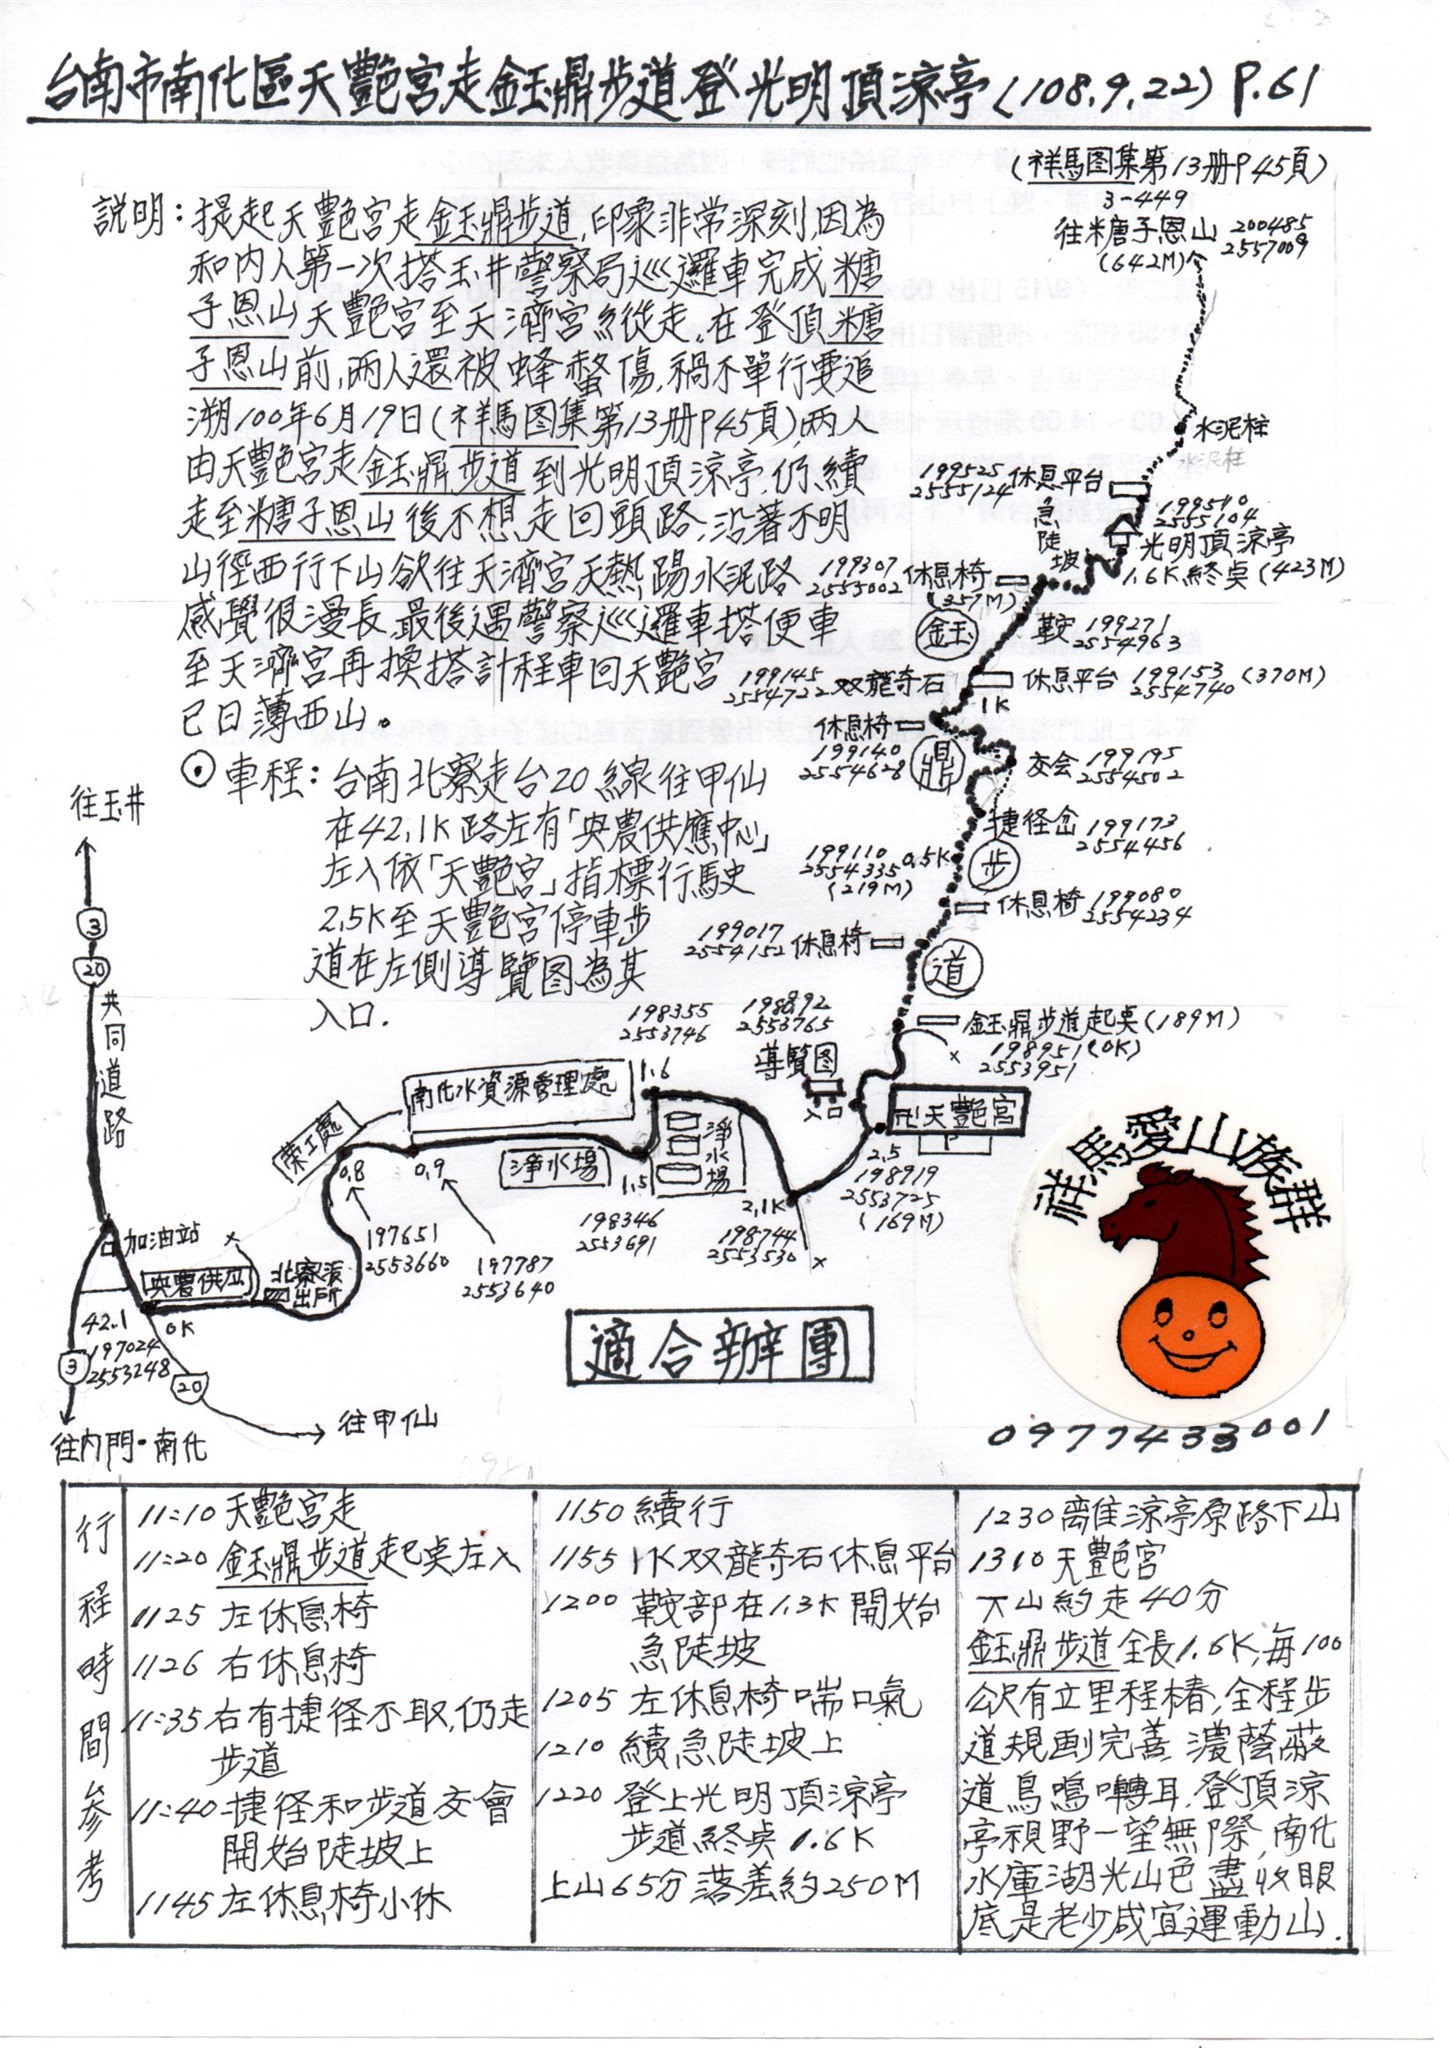 台南市南化區天艷宮走金玉鼎步道登光明頂涼亭(108.9.22) P.61
(祥馬图集第13册P45頁)
3-449
往糖子恩山 200485
2557009
(642M)
説明：提起天艷宮走金玉鼎步道,印象非常深刻,因為
和内人第一次搭玉井警察局巡邏車完成糖
子恩山天艷宮至天濟宮縱走,在登頂糖
子恩山前,両人還被蜂螫傷,禍不單行要追
溯100年6月19日(祥馬图集第13册P45頁)両人
由天艷宮走金玉鼎步道到光明頂涼亭,仍續
走至糖子恩山後不想走回頭路,沿著不明
山徑西行下山欲往天濟宮天熱踢水泥路
感覺很漫長,最後遇警察巡邏車搭便車
至天濟宮再換搭計程車回天艷宮
已日薄西山。
⊙車程：台南北寮走台20線往甲仙
在42.1K路左有「央農供應中心」
左入依「天艷宮」指標行駛
2.5K至天艷宮停車步
道在左側導覽图為其
入口.
水泥柱
水泥柱
199525
2555124 休息平台
急陡坡
199540
2555104
光明頂涼亭
1.6K終桌(423M)
199307
2555002 休息椅
(357M)
鞍 199271
2554963
金玉
199145
2554722 双龍奇石
休息平台 199153
2554740 (370M)
1K
休息椅
199140
2554628
鼎
交会 199195
2554502
捷径岔 199173
2554456
199110
2554335 0.5K
(219M)
步
休息椅 199080
2554234
199017
2554152 休息椅
道
金玉鼎步道起桌(189M)
198951(0K)
2553951
198892
2553765
導覽图
入口
卍天艷宮
P
2.5
198919
2553725
(169M)
198355
2553746
1.6
南化水資源管理處
榮工處
0.8
0.9
淨水場
1.5
淨水場
2.1K
198744
2553530
198346
2553691
197651
2553660
197787
2553640
往玉井
3
20
共同道路
加油站
央農供应
北寮派出所
42.1
197024
2553248
0K
3
20
往甲仙
往内門·南化
適合辦團
祥馬愛山族群
0977433001
行程時間參考
11:10 天艷宮走
11:20 金玉鼎步道起桌左入
1125 左休息椅
1126 右休息椅
11:35 右有捷径不取,仍走
步道
11:40 捷径和步道交會
開始陡坡上
1145 左休息椅小休
1150 續行
1155 1K双龍奇石休息平台
1200 鞍部在1.3K開始
急陡坡
1205 左休息椅喘口氣
1210 續急陡坡上
1220 登上光明頂涼亭
步道終桌1.6K
上山65分落差約250M
1230 離涼亭原路下山
1310 天艷宮
下山約走40分
金玉鼎步道全長1.6K,每100
公尺有立里程樁,全程步
道規画完善,濃蔭蔽
道鳥鳴囀耳,登頂涼
亭視野一望無際,南化
水庫湖光山色盡收眼
底是老少咸宜運動山.